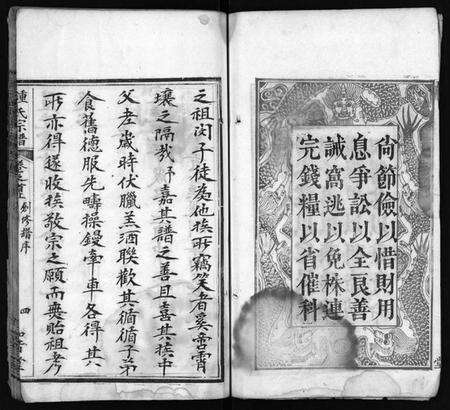 尚節儉以惜財用
息爭訟以全良善
誡窩逃以免株連
完錢糧以省催科
之祖閔子徒為他族所竊笑者奚啻霄
壤之隔哉予嘉其譜之善且喜其族中
父老歲時伏臘羔酒聯歡其循循子弟
食舊德服先疇操鏝牽車各得其
所亦得遂收族敬宗之願而無貽祖考
鍾氏宗譜
卷之首 創修譜序
四